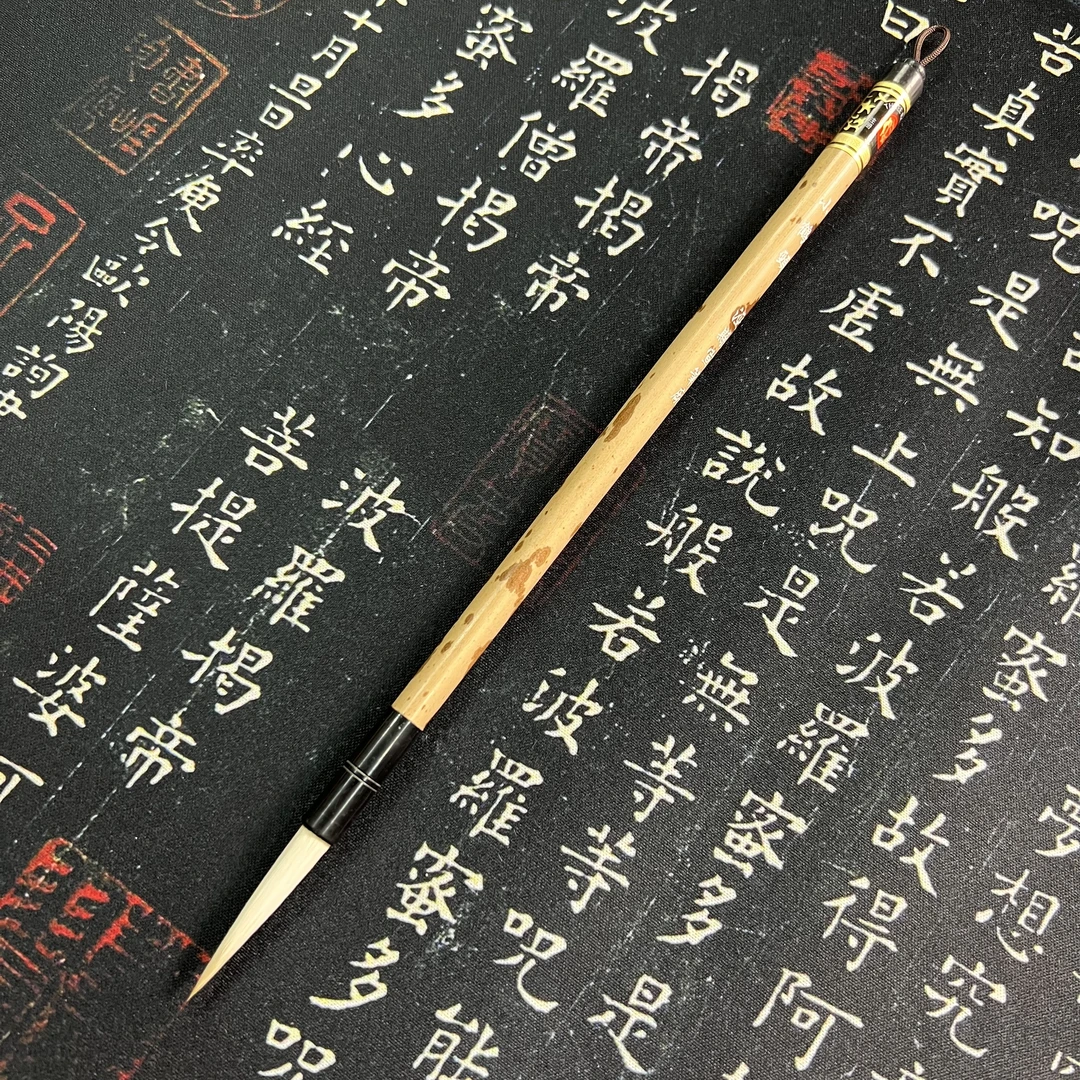 夢想究
羅蜜多故得阿
知般若波羅蜜多是
咒是無上咒是無等等咒能
苦真實不虛故說般若波羅蜜多咒
曰
揭帝揭帝波羅揭帝
波羅僧揭帝菩提薩婆
蜜多心經
十月旦日率更令歐陽詢書